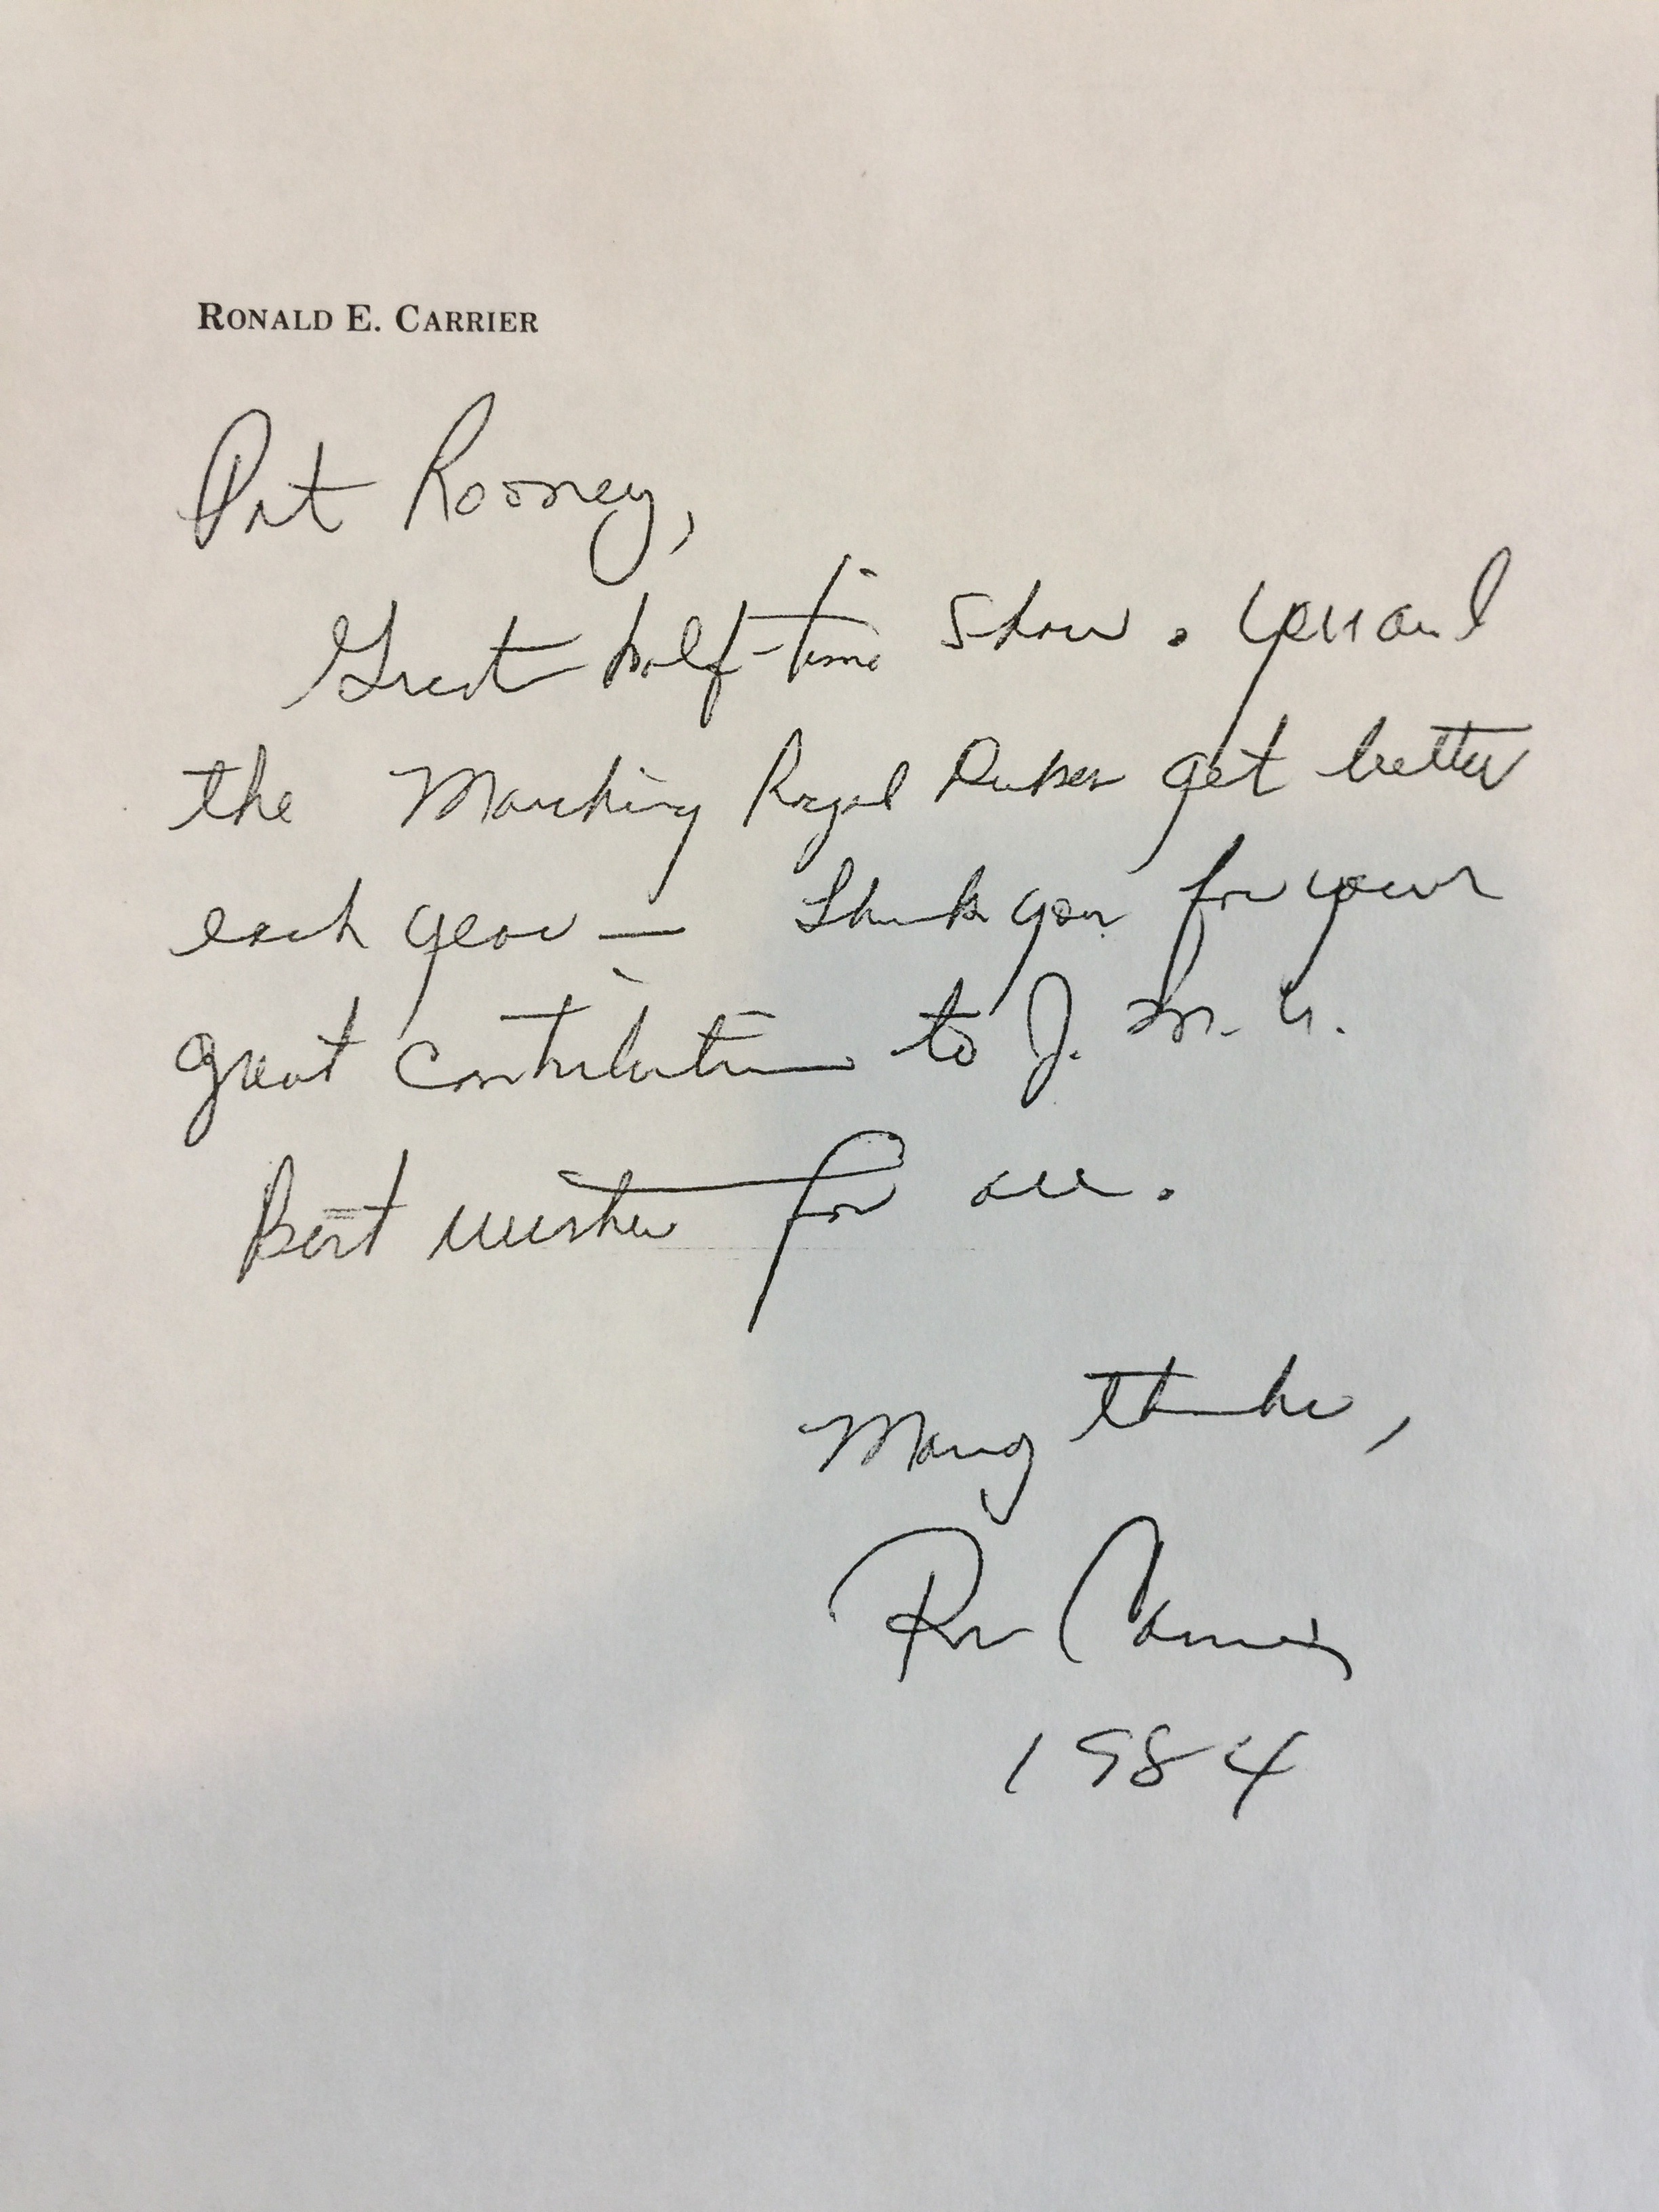 RONALD E. CARRIER
Pat Rooney,
Great half-time show. You and
the Marching Royal Dukes get better
each year — Thank you for your
great contribution to J. M. U.
Best wishes for all.
Many thanks,
Ron Carrier
1984